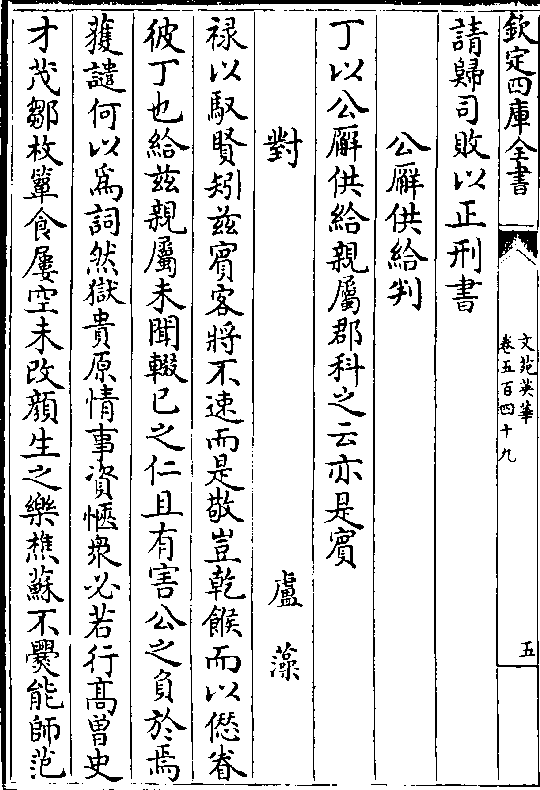 欽定四庫全書
文苑英華
卷五百四十九
五
請歸司敗以正刑書
公廨供給判
丁以公廨供給親屬郡科之云亦是賓
對 盧藻
禄以馭賢矧兹賓客將不速而是敬豈乾餱而以愆眷
彼丁也給兹親屬未聞輟已之仁且有害公之負於焉
獲譴何以為詞然獄貴原情事資愜衆必若行高曽史
才茂鄒枚簞食屢空未改顔生之樂樵蘇不爨能師范